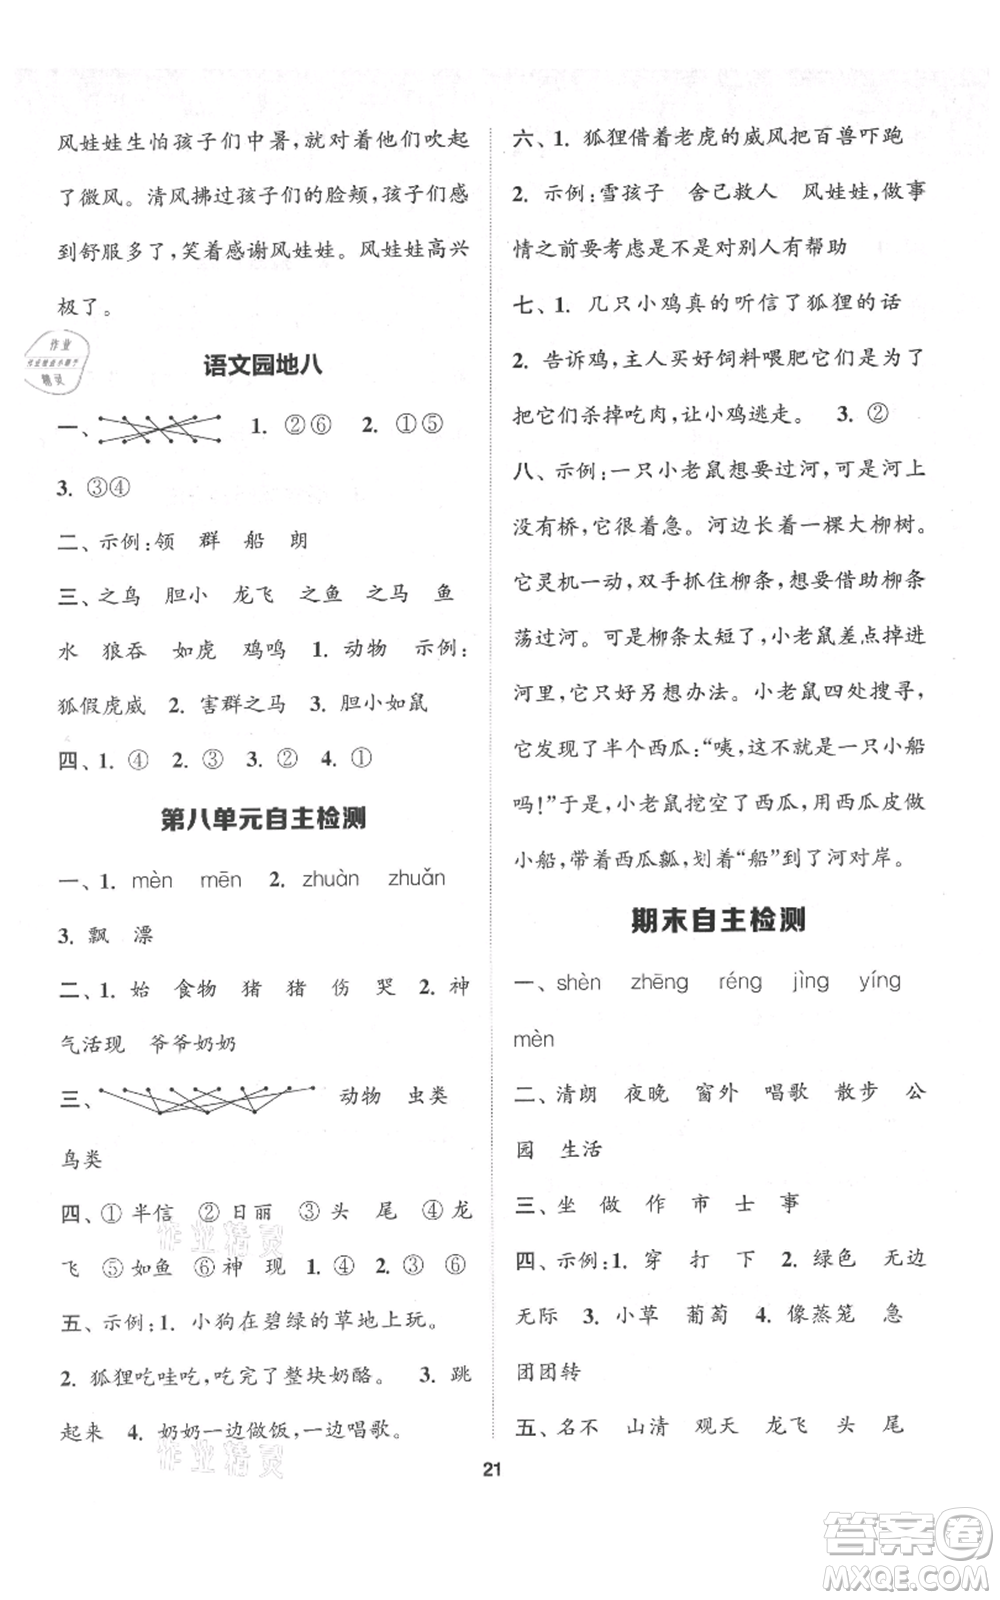 风娃娃生怕孩子们中暑,就对着他们吹起
了微风。清风拂过孩子们的脸颊,孩子们感
到舒服多了,笑着感谢风娃娃。风娃娃高兴
极了。
作业
精灵
语文园地八
一、 1. ②⑥ 2. ①⑤
3. ③④
二、示例:领 群 船 朗
三、之鸟 胆小 龙飞 之鱼 之马 鱼
水 狼吞 如虎 鸡鸣 1. 动物 示例:
狐假虎威 2. 害群之马 3. 胆小如鼠
四、1. ④ 2. ③ 3. ② 4. ①
第八单元自主检测
一、1. mèn mēn 2. zhuàn zhuǎn
3. 飘 漂
二、1. 始 食物 猪 猪 伤 哭 2. 神
气活现 爷爷奶奶
三、 动物 虫类
鸟类
四、①半信 ②日丽 ③头 尾 ④龙
飞 ⑤如鱼 ⑥神 现 1. ④ 2. ③ ⑥
五、示例:1. 小狗在碧绿的草地上玩。
2. 狐狸吃哇吃,吃完了整块奶酪。 3. 跳
起来 4. 奶奶一边做饭,一边唱歌。
六、1. 狐狸借着老虎的威风把百兽吓跑
2. 示例:雪孩子 舍己救人 风娃娃,做事
情之前要考虑是不是对别人有帮助
七、1. 几只小鸡真的听信了狐狸的话
2. 告诉鸡,主人买好饲料喂肥它们是为了
把它们杀掉吃肉,让小鸡逃走。 3. ②
八、示例:一只小老鼠想要过河,可是河上
没有桥,它很着急。河边长着一棵大柳树。
它灵机一动,双手抓住柳条,想要借助柳条
荡过河。可是柳条太短了,小老鼠差点掉进
河里,它只好另想办法。小老鼠四处搜寻,
它发现了半个西瓜:“咦,这不就是一只小船
吗!”于是,小老鼠挖空了西瓜,用西瓜皮做
小船,带着西瓜瓤,划着“船”到了河对岸。
期末自主检测
一、shèn zhēng réng jìng yíng
mèn
二、清朗 夜晚 窗外 唱歌 散步 公
园 生活
三、坐 做 作 市 士 事
四、示例:1. 穿 打 下 2. 绿色 无边
无际 3. 小草 葡萄 4. 像蒸笼 急
团团转
五、名不 山清 观天 龙飞 头 尾
作业精灵
作业精灵
21
答案圈
MXQE.COM